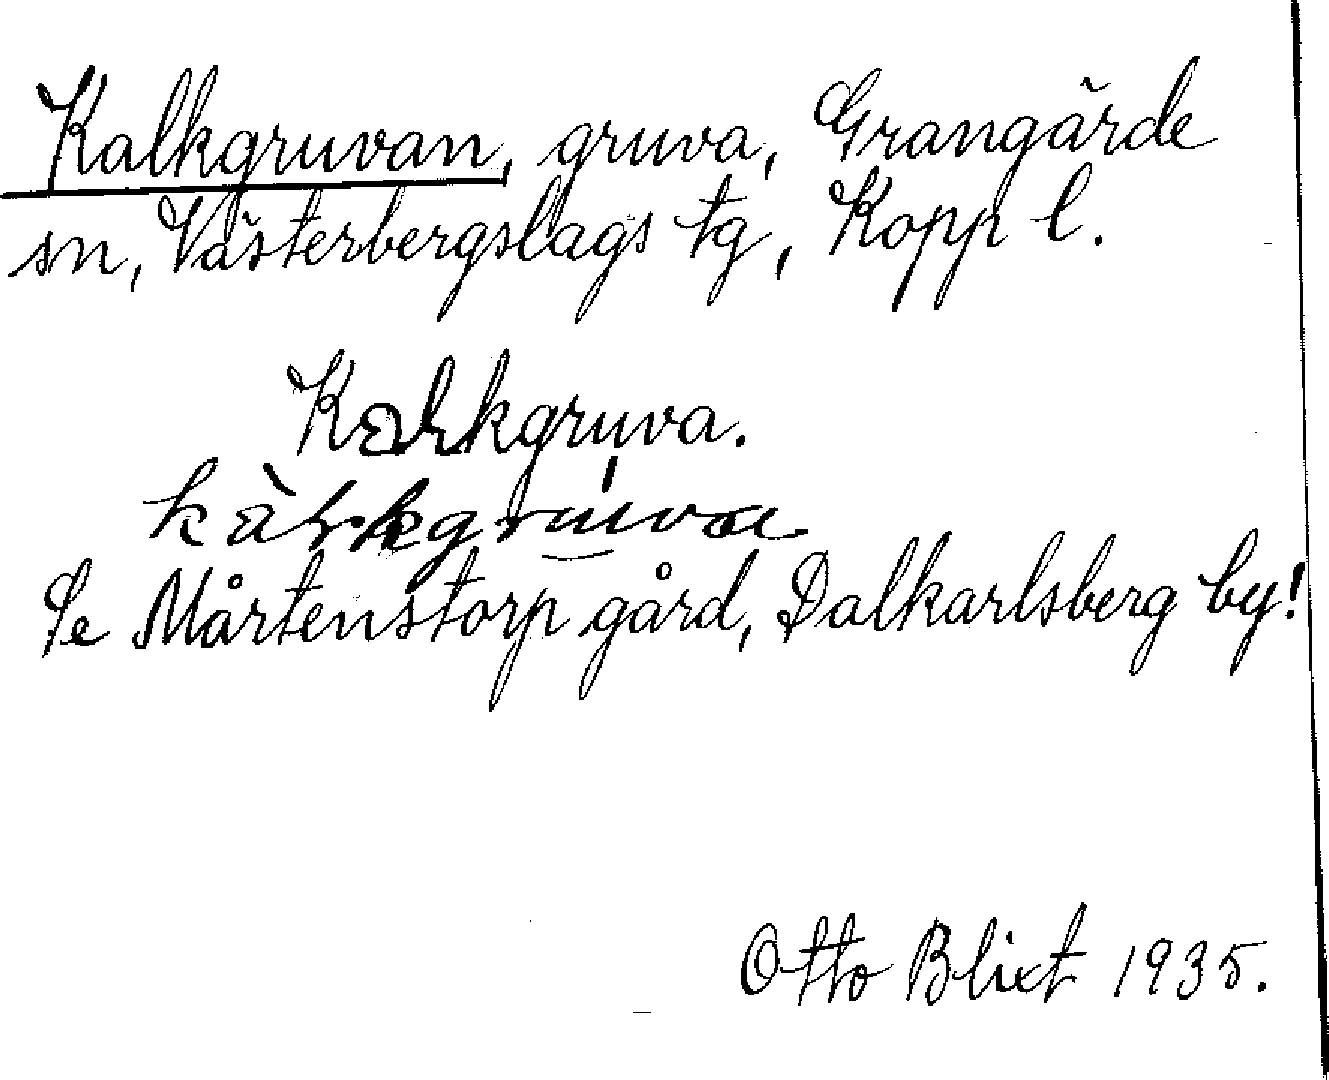 Kalkgruvan, gruva, Grangärde
sn, Västerbergslags tg, Kopp l.
Kalkgruva.
Se Mårtenstorp gård, Dalkarlsberg by!
Otto Blixt 1935.